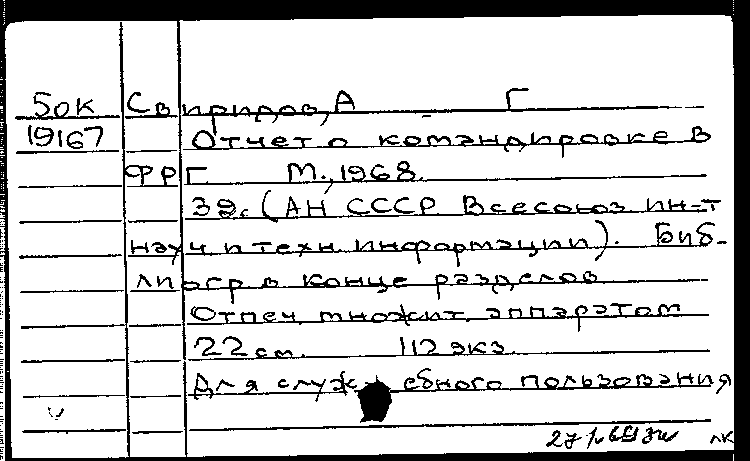 БОК Свиридов, А Г
19167 Отчет о командировке в
ФРГ М., 1968.
39с. (АН СССР Всесоюз ин-т
науч и техн информации). Биб-
лиогр в конце разделов
Отпеч множит. аппаратом
22 см. 112 экз.
Для служебного пользования
лк